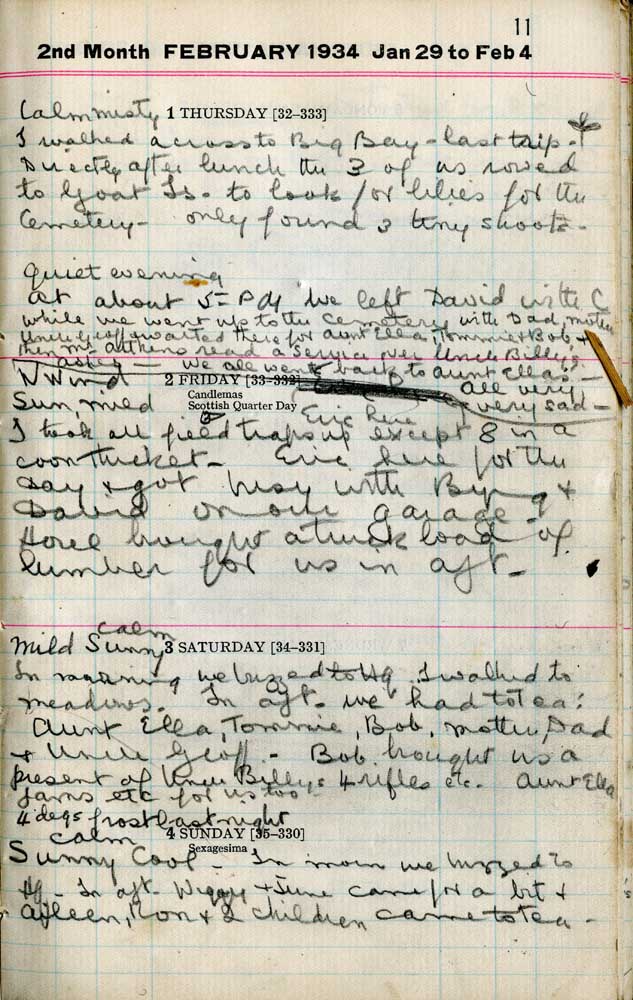 11
2nd Month FEBRUARY 1934 Jan 29 to Feb 4
Calm misty 1 THURSDAY [32-333]
I walked across to Big Bay - last trip -
Directly after lunch the 3 of us rowed
to Goat Is. to look for lilies for the
Cemetery - only found 3 tiny shoots.
Quiet evening
At about 5 - P we left David with C
while we went up to the Cemetery with Dad, mother
Uncle Geoff & waited there for Aunt Ella, Tommie & Bob &
then Mr read a Service over Uncle Billy's
ashes - We all went back to Aunt Ella's -
N Wind 2 FRIDAY [33-332] all very
Candlemas
Sun, mild Scottish Quarter Day very sad -
Eric here
I took all field traps up except 8 in a
coon thicket - Eric here for the
day & got busy with Byng &
David on our garage -
brought a truck load of
lumber for us in aft. -
calm
Mild Sunny 3 SATURDAY [34-331]
In morning we buzzed to Hq. I walked to
meadows. In aft. we had to tea:
Aunt Ella, Tommie, Bob, mother, Dad
& Uncle Geoff. - Bob brought us a
present of Uncle Billy's 4 rifles etc. Aunt Ella
jams etc for us too
4 degs frost last night
calm 4 SUNDAY [35-330]
Sexagesima
Sunny Cool - In morn we buzzed to
Hq - In aft. Wiggy & June came for a bit &
Aileen, Ron & 2 children came to tea -